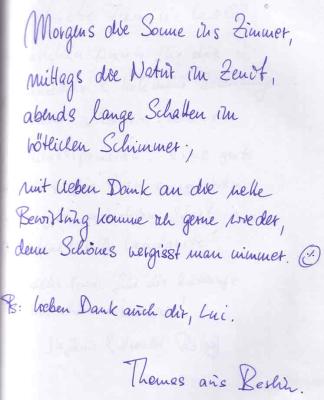 Morgens die Sonne ins Zimmer,
mittags die Natur im Zenit,
abends lange Schatten im
rötlichen Schimmer;
mit lieben Dank an die nette
Bewirtung komme ich gerne wieder,
denn Schönes vergisst man nimmer.
Ps: Lieben Dank auch dir, Lui.
Thomas aus Berlin.